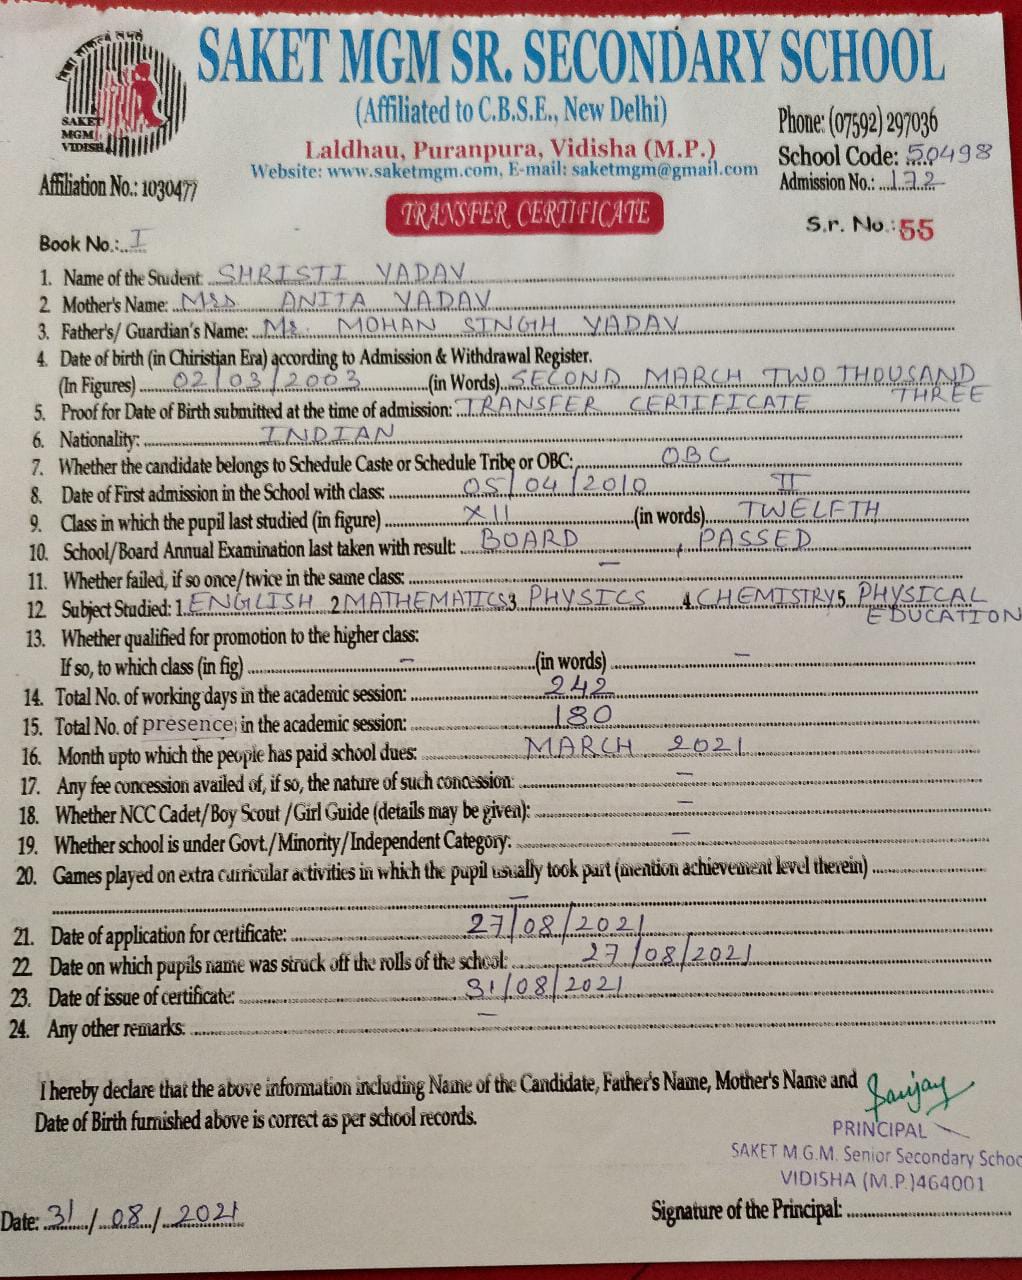 SAKET MGM SR. SECONDARY SCHOOL
(Affiliated to C.B.S.E., New Delhi)
Phone: (07592) 297036
Laldhau, Puranpura, Vidisha (M.P.)
School Code: 50498
Website: www.saketmgm.com, E-mail: saketmgm@gmail.com
SAKET
MGM
VIDISHA
Affiliation No.: 1030477
Admission No.: 172
TRANSFER CERTIFICATE
S.r. No.: 55
Book No.: I
1. Name of the Student: SHRISTI YADAV
2. Mother's Name: Mrs. ANITA YADAV
3. Father's/ Guardian's Name: Mr. MOHAN SINGH YADAV
4. Date of birth (in Chiristian Era) according to Admission & Withdrawal Register.
(In Figures) 02/03/2003 (in Words) SECOND MARCH TWO THOUSAND THREE
5. Proof for Date of Birth submitted at the time of admission: TRANSFER CERTIFICATE
6. Nationality: INDIAN
7. Whether the candidate belongs to Schedule Caste or Schedule Tribe or OBC: OBC
8. Date of First admission in the School with class: 05/04/2010 II
9. Class in which the pupil last studied (in figure) XII (in words) TWELFTH
10. School/Board Annual Examination last taken with result: BOARD, PASSED
11. Whether failed, if so once/twice in the same class: –
12. Subject Studied: 1. ENGLISH 2 MATHEMATICS 3 PHYSICS 4. CHEMISTRY 5 PHYSICAL EDUCATION
13. Whether qualified for promotion to the higher class:
If so, to which class (in fig) – (in words) –
14. Total No. of working days in the academic session: 242
15. Total No. of presence in the academic session: 180
16. Month upto which the people has paid school dues: MARCH 2021
17. Any fee concession availed of, if so, the nature of such concession: –
18. Whether NCC Cadet/Boy Scout /Girl Guide (details may be given): –
19. Whether school is under Govt./Minority/Independent Category: –
20. Games played on extra curricular activities in which the pupil usually took part (mention achievement level therein)
–
21. Date of application for certificate: 27/08/2021
22 Date on which pupils name was struck off the rolls of the school: 27/08/2021
23. Date of issue of certificate: 31/08/2021
24. Any other remarks: –
I hereby declare that the above information including Name of the Candidate, Father's Name, Mother's Name and
Date of Birth furnished above is correct as per school records.
Sanjay
PRINCIPAL
SAKET M.G.M. Senior Secondary Schoo
VIDISHA (M.P.)464001
Date: 31/08/2021
Signature of the Principal: